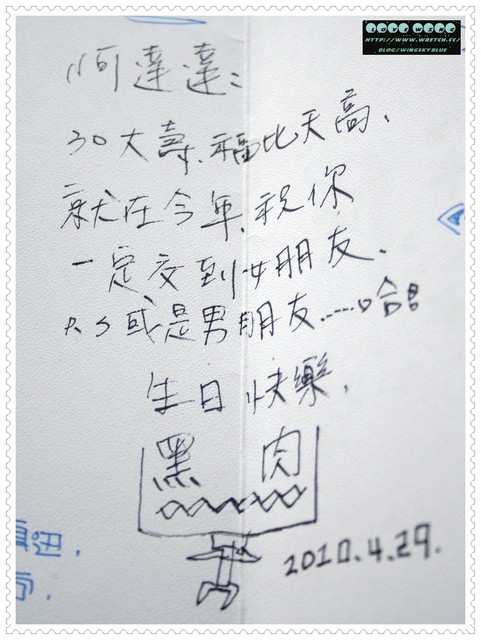 HTTP://WWW.WRETCH.CC/
BLOG/WINGSKYBLUE
阿達達:
30大壽、福比天高、
就在今年, 祝你
一定交到女朋友.
P.S 或是男朋友……哈
生日快樂,
黑 肉
2010.4.29.